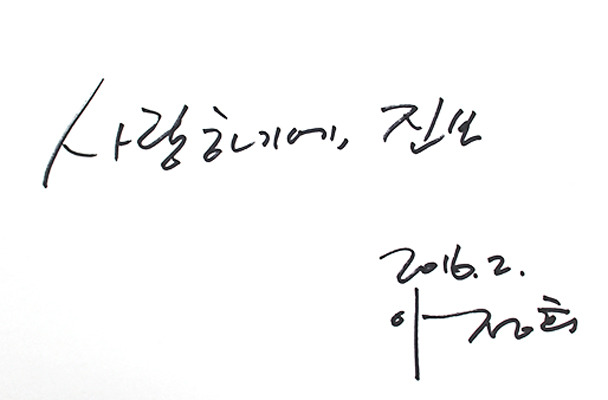 사랑하기에, 진보
2016. 2.
이정희